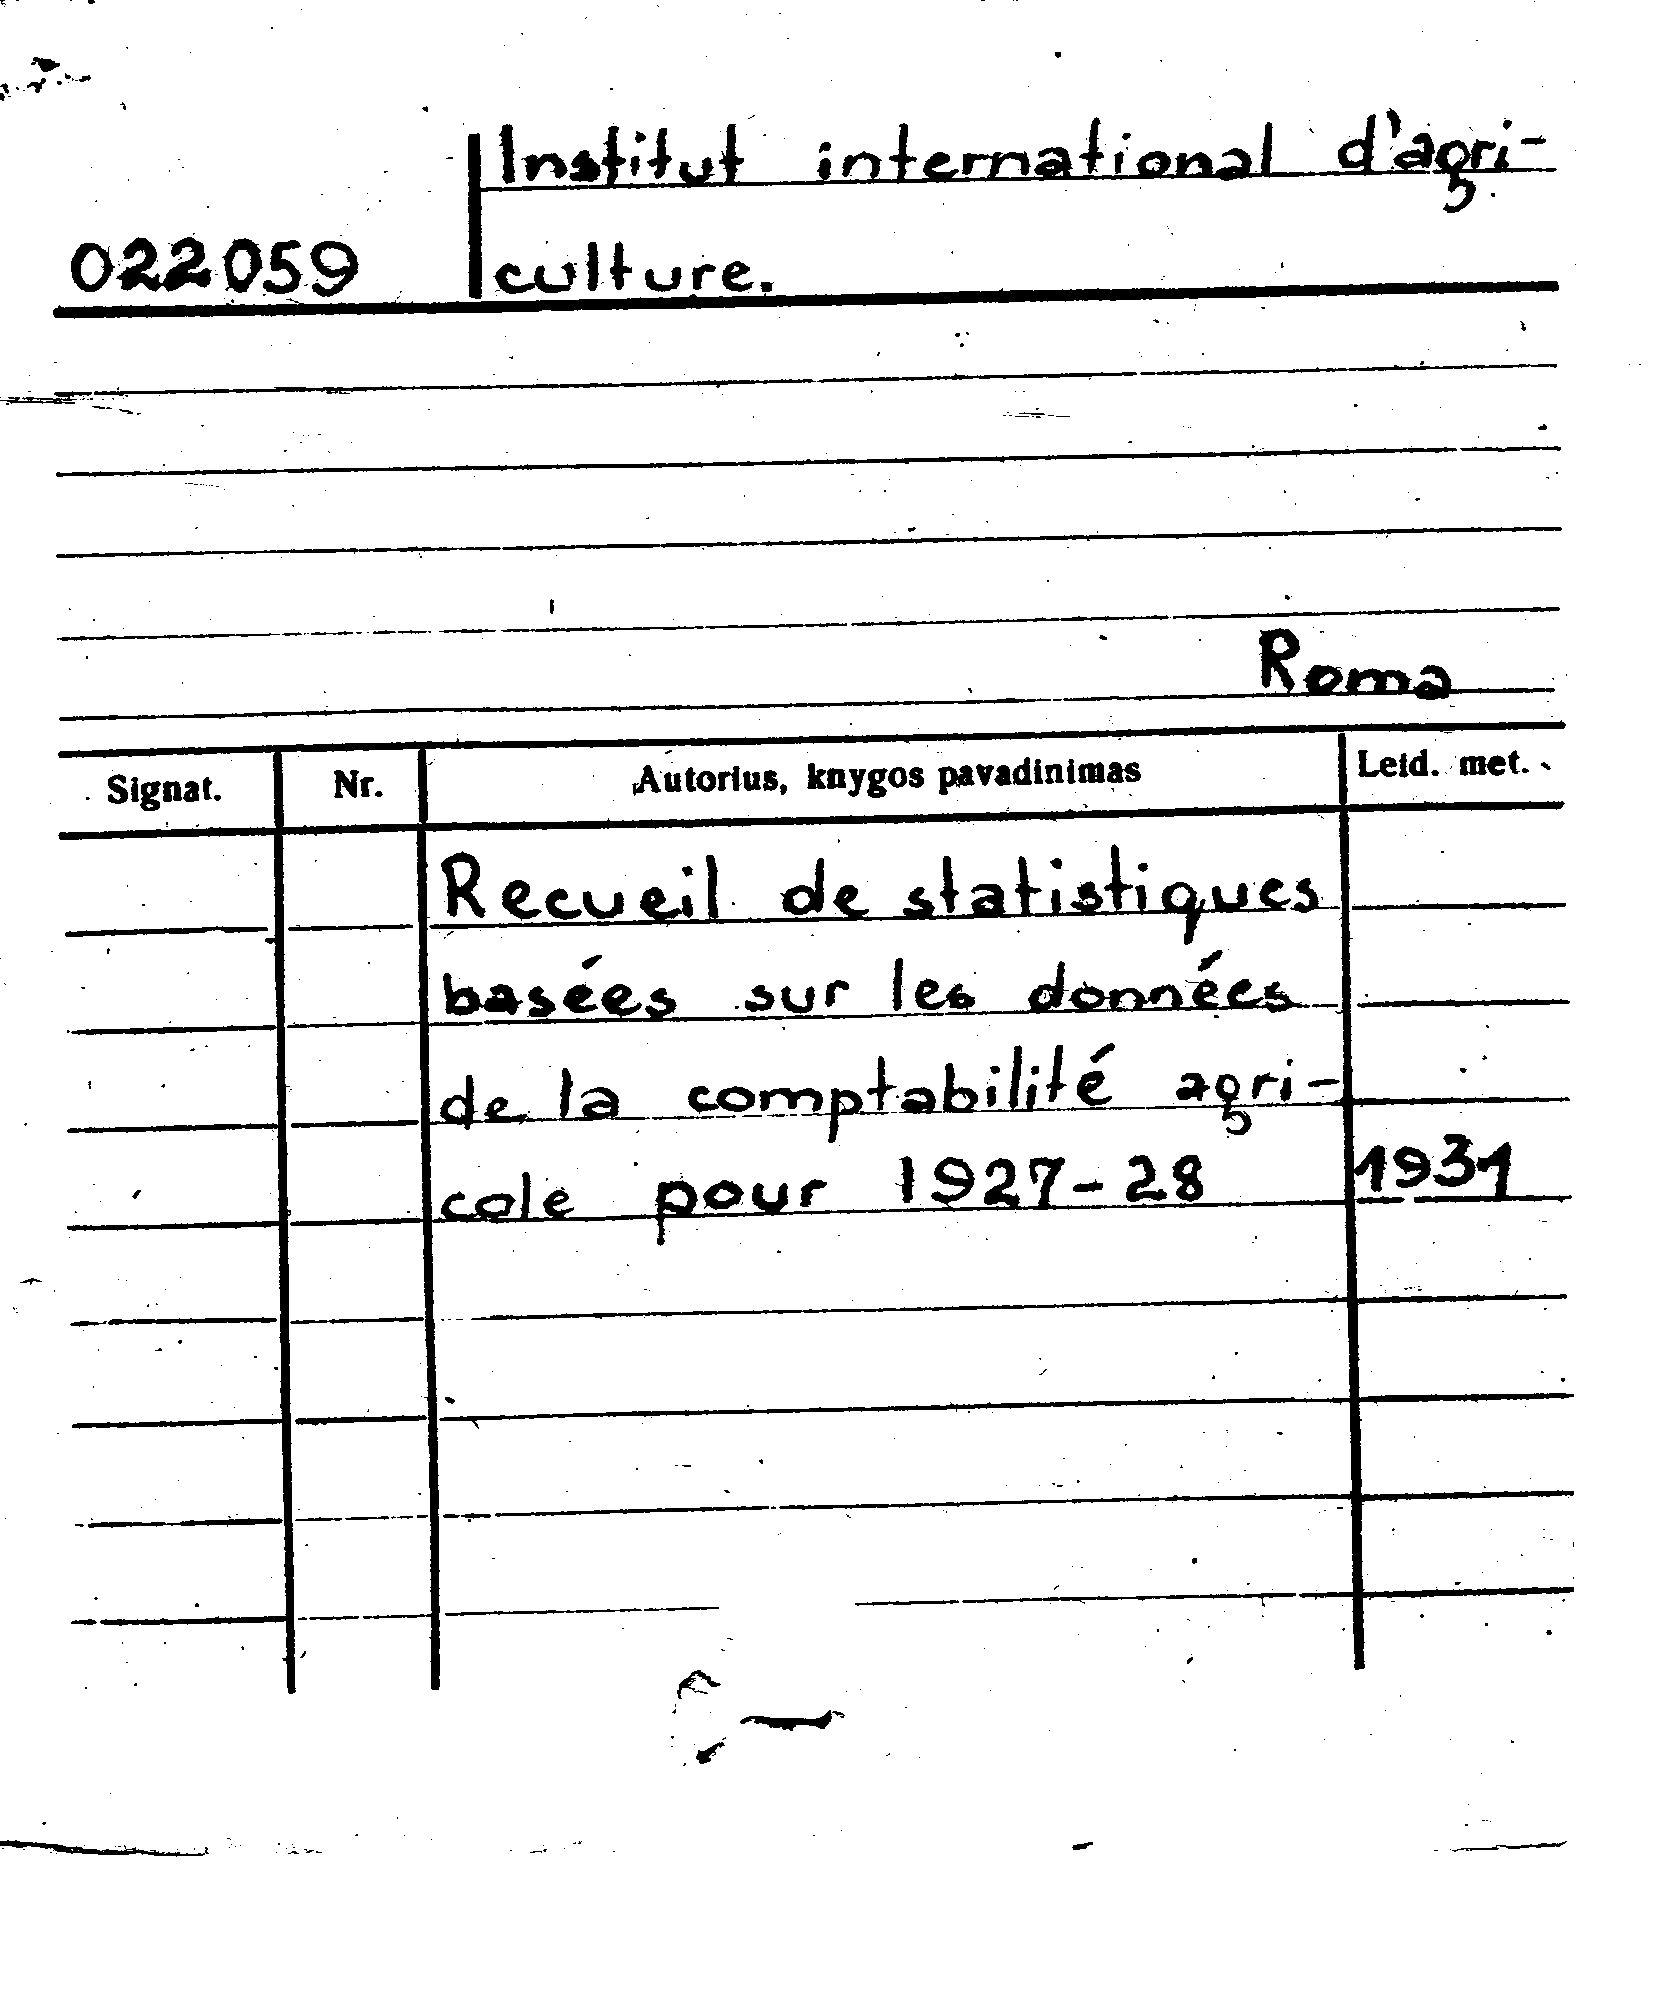 Institut international d'agri-
022059 culture.
Roma
Signat. Nr. Autorius, knygos pavadinimas Leid. met.
Recueil de statistiques
basées sur les données
de la comptabilité agri-
cole pour 1927-28 1931